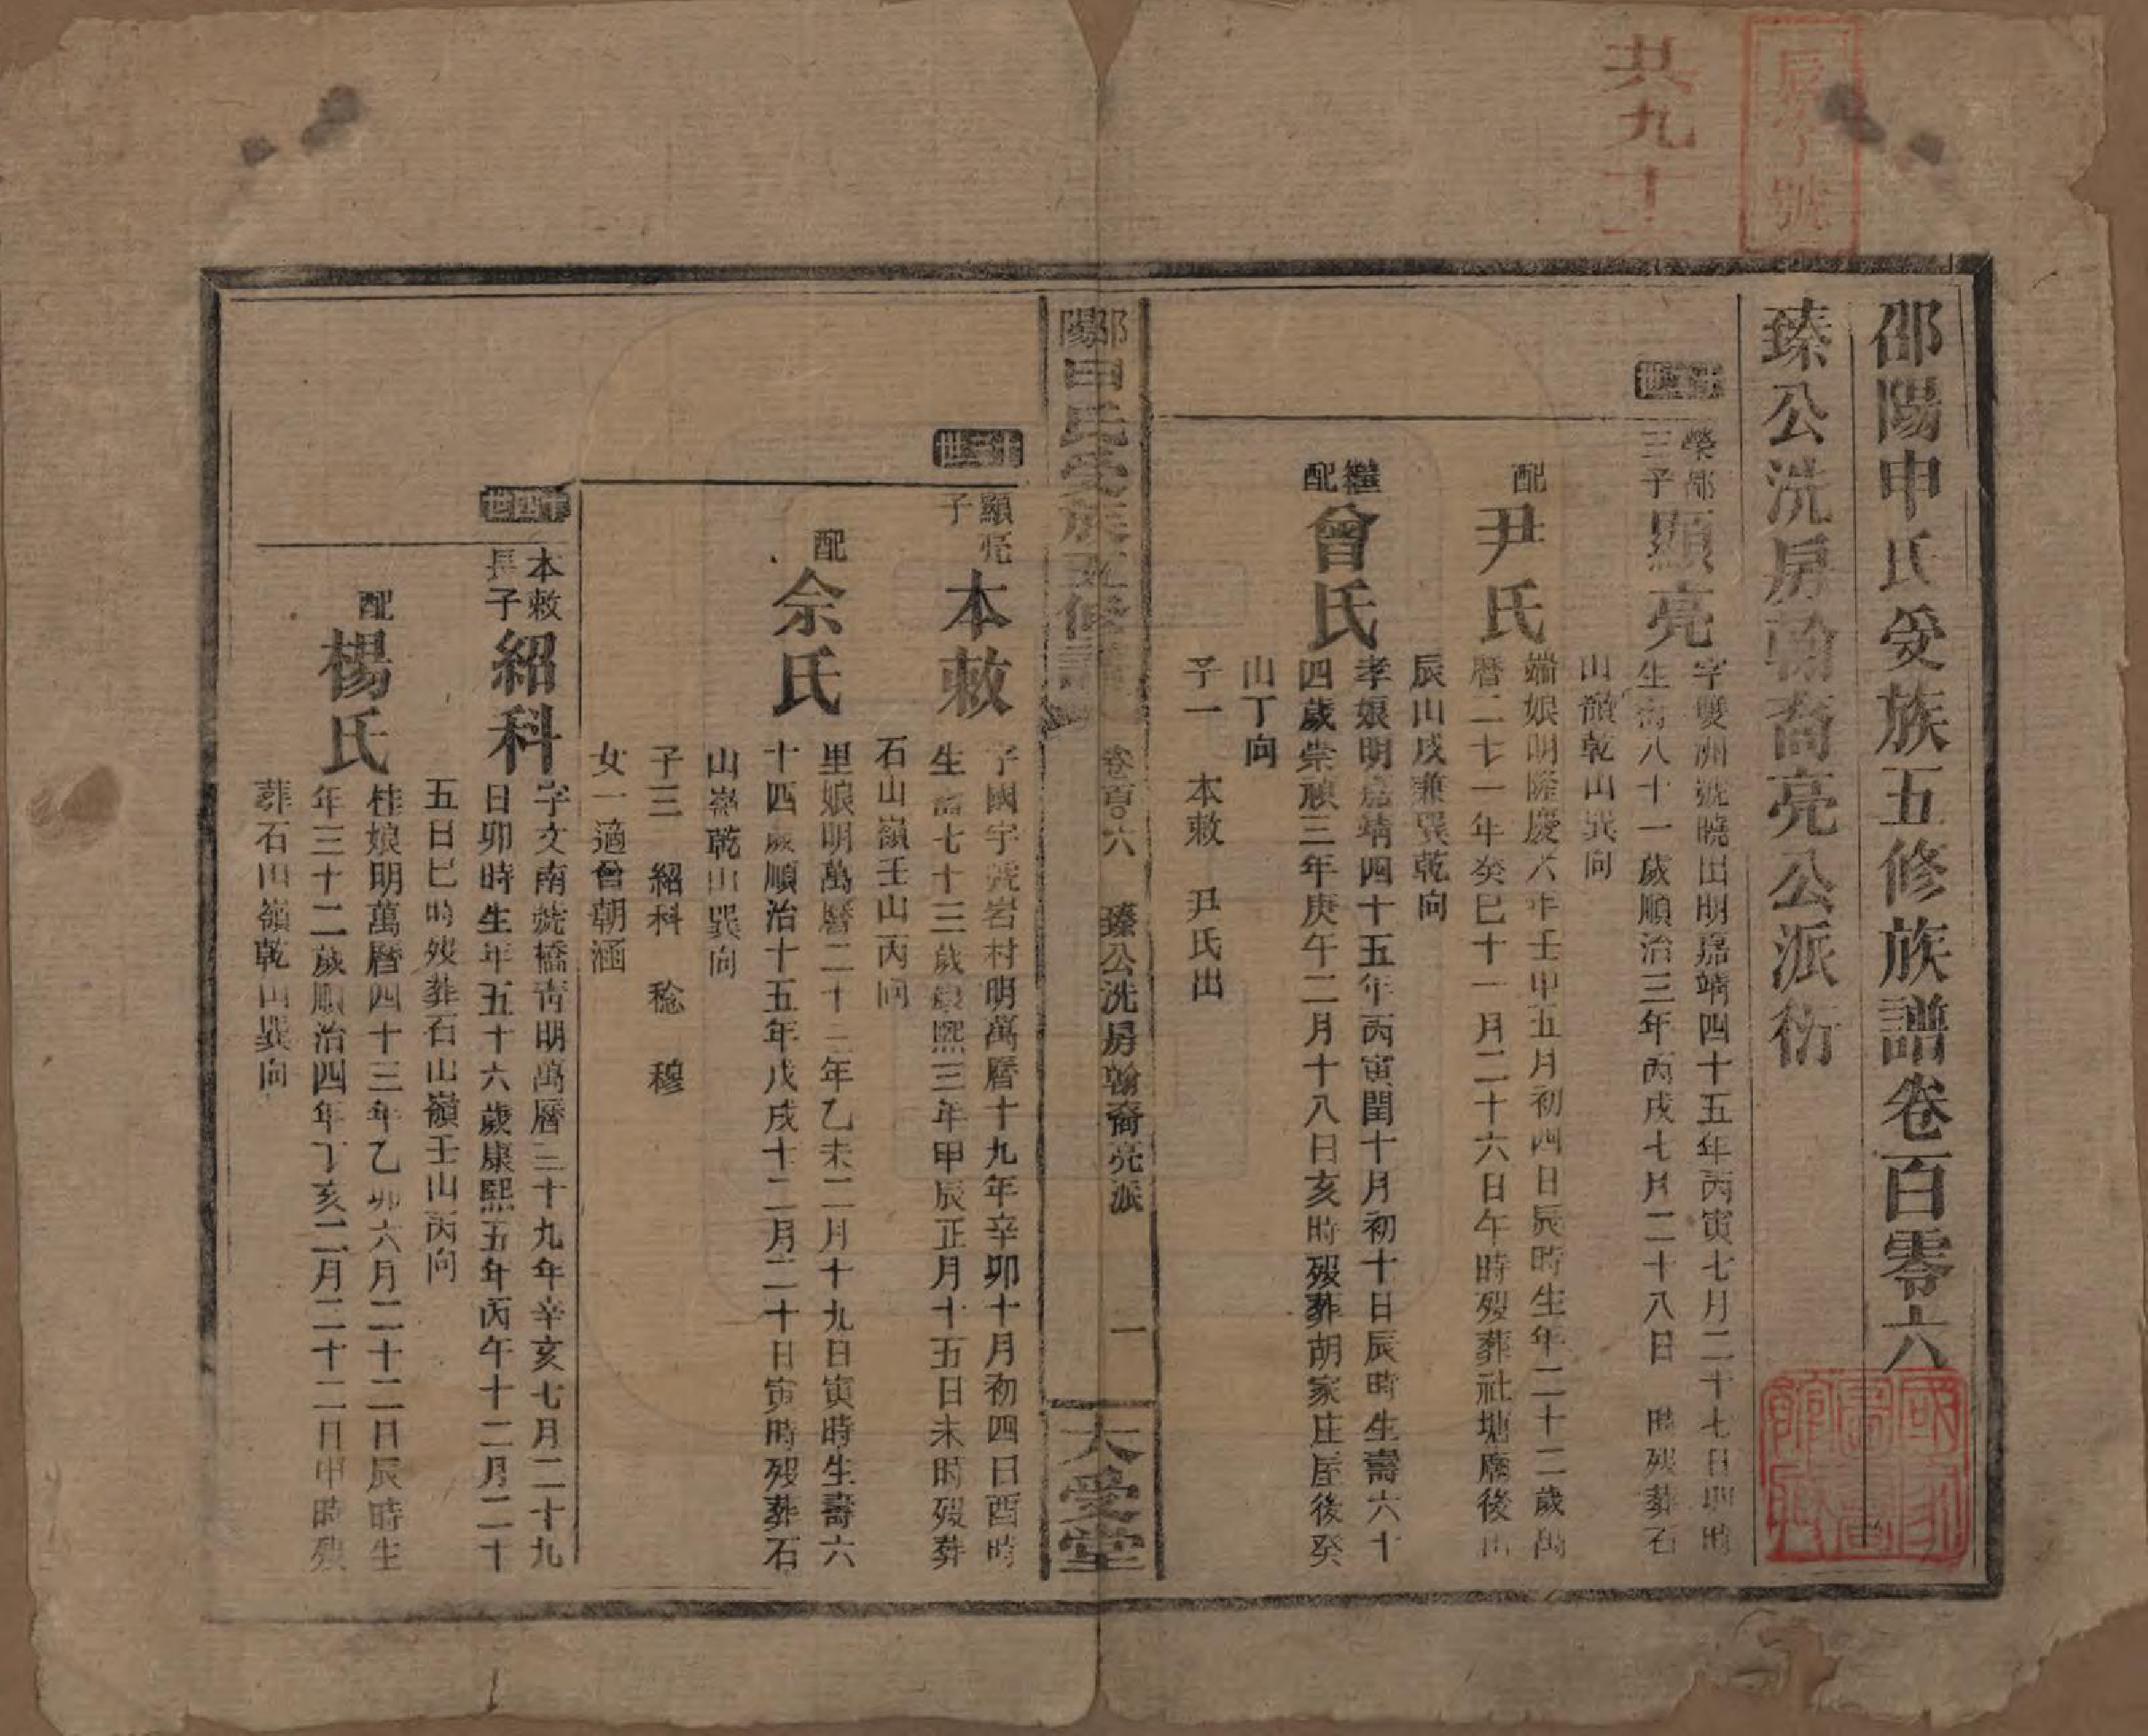 共九十六
號
邵陽申氏受族五修族譜卷百零六
臻公洗房翰裔亮公派衍
十二世
榮鄒三子
顯亮
字雙洲號曉田明嘉靖四十五年丙寅七月二十七日卯時
生壽八十一歲順治三年丙戌七月二十八日 時歿葬石
山嶺乾山巽向
配
尹氏
端娘明隆慶六年壬申五月初四日辰時生年二十二歲萬
曆二七一年癸巳十一月二十六日午時歿葬社塘廟後山
辰山戌兼巽乾向
繼配
曾氏
孝娘明嘉靖四十五年丙寅閏十月初十日辰時生壽六十
四歲崇禎三年庚午二月十八日亥時歿葬胡家庄屋後癸
山丁向
子一 本敕 尹氏出
邵陽申氏受族五修譜
卷百〇六 臻公洗房翰裔亮派
一
大受堂
十三世
顯亮子
本敕
字國宇號岩村明萬曆十九年辛卯十月初四日酉時
生壽七十三歲康熙三年甲辰正月十五日未時歿葬
石山嶺壬山丙向
配
佘氏
里娘明萬曆二十三年乙未二月十九日寅時生壽六
十四歲順治十五年戊戌十二月二十日寅時歿葬石
山嶺乾山巽向
子三 紹科 稔 穆
女一適曾朝涵
十四世
本敕長子
紹科
字文南號橋青明萬曆三十九年辛亥七月二十九
日卯時生年五十六歲康熙五年丙午十二月二十
五日巳時歿葬石山嶺壬山丙向
配
楊氏
桂娘明萬曆四十三年乙卯六月二十二日辰時生
年三十二歲順治四年丁亥二月二十二日申時歿
葬石山嶺乾山巽向